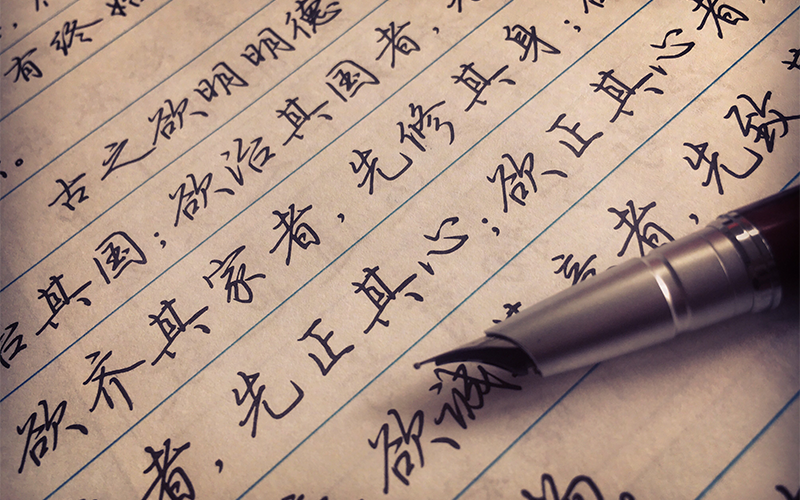 有终始
古之欲明明德
其国；欲治其国者，
欲齐其家者，先修其身；
者，先正其心；欲正其心者
欲诚意者，先致